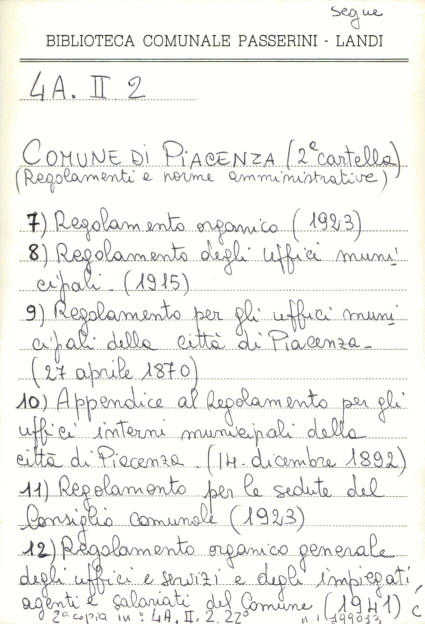 segue
BIBLIOTECA COMUNALE PASSERINI - LANDI
4A. II 2
COMUNE DI PIACENZA (2ª cartella)
(Regolamenti e norme amministrative)
7) Regolamento organico (1923)
8) Regolamento degli uffici muni
cipali. (1915)
9) Regolamento per gli uffici muni
cipali della città di Piacenza-
(27 aprile 1870)
10) Appendice al Regolamento per gli
uffici interni municipali della
città di Piacenza. (14. dicembre 1892)
11) Regolamento per le sedute del
Consiglio comunale (1923)
12) Regolamento organico generale
degli uffici e servizi e degli impiegati
agenti e salariati del Comune (1941)
2ª copia in: 4A. II. 2. 22º